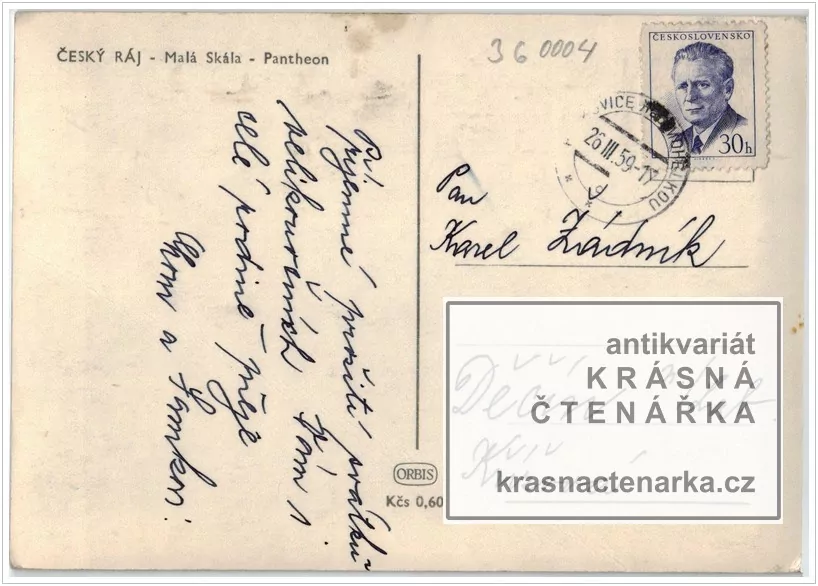 ČESKÝ RÁJ - Malá Skála - Pantheon
36 0004
ČESKOSLOVENSKO
30h
OVICE NAD MOHELKOU
26.III.59-17
příjemné prožití svátků
velikonočních Vám i
celé rodině přeje
Pan
Karel Zádník
Děčín
ORBIS
Kčs 0,60
antikvariát
KRÁSNÁ
ČTENÁŘKA
krasnactenarka.cz